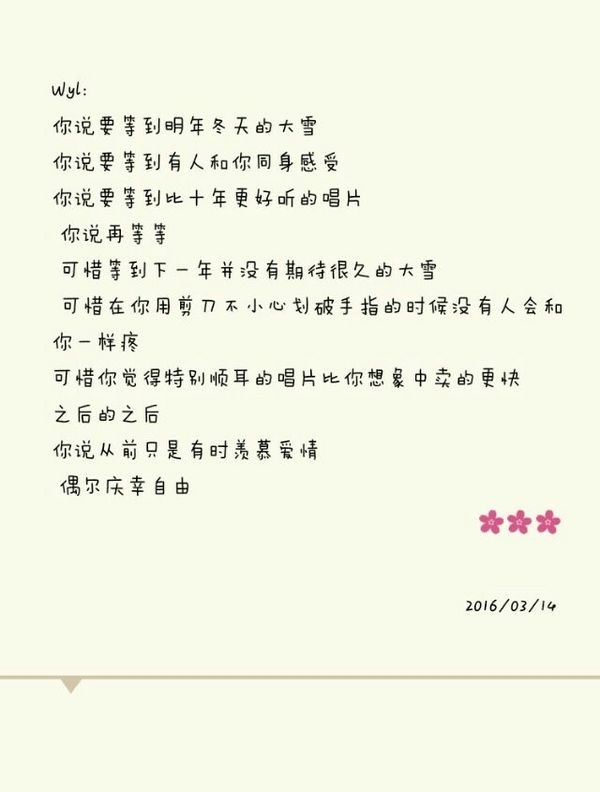 Wyl:
你说要等到明年冬天的大雪
你说要等到有人和你同身感受
你说要等到比十年更好听的唱片
你说再等等
可惜等到下一年并没有期待很久的大雪
可惜在你用剪刀不小心划破手指的时候没有人会和
你一样疼
可惜你觉得特别顺耳的唱片比你想象中卖的更快
之后的之后
你说从前只是有时羡慕爱情
偶尔庆幸自由
2016/03/14